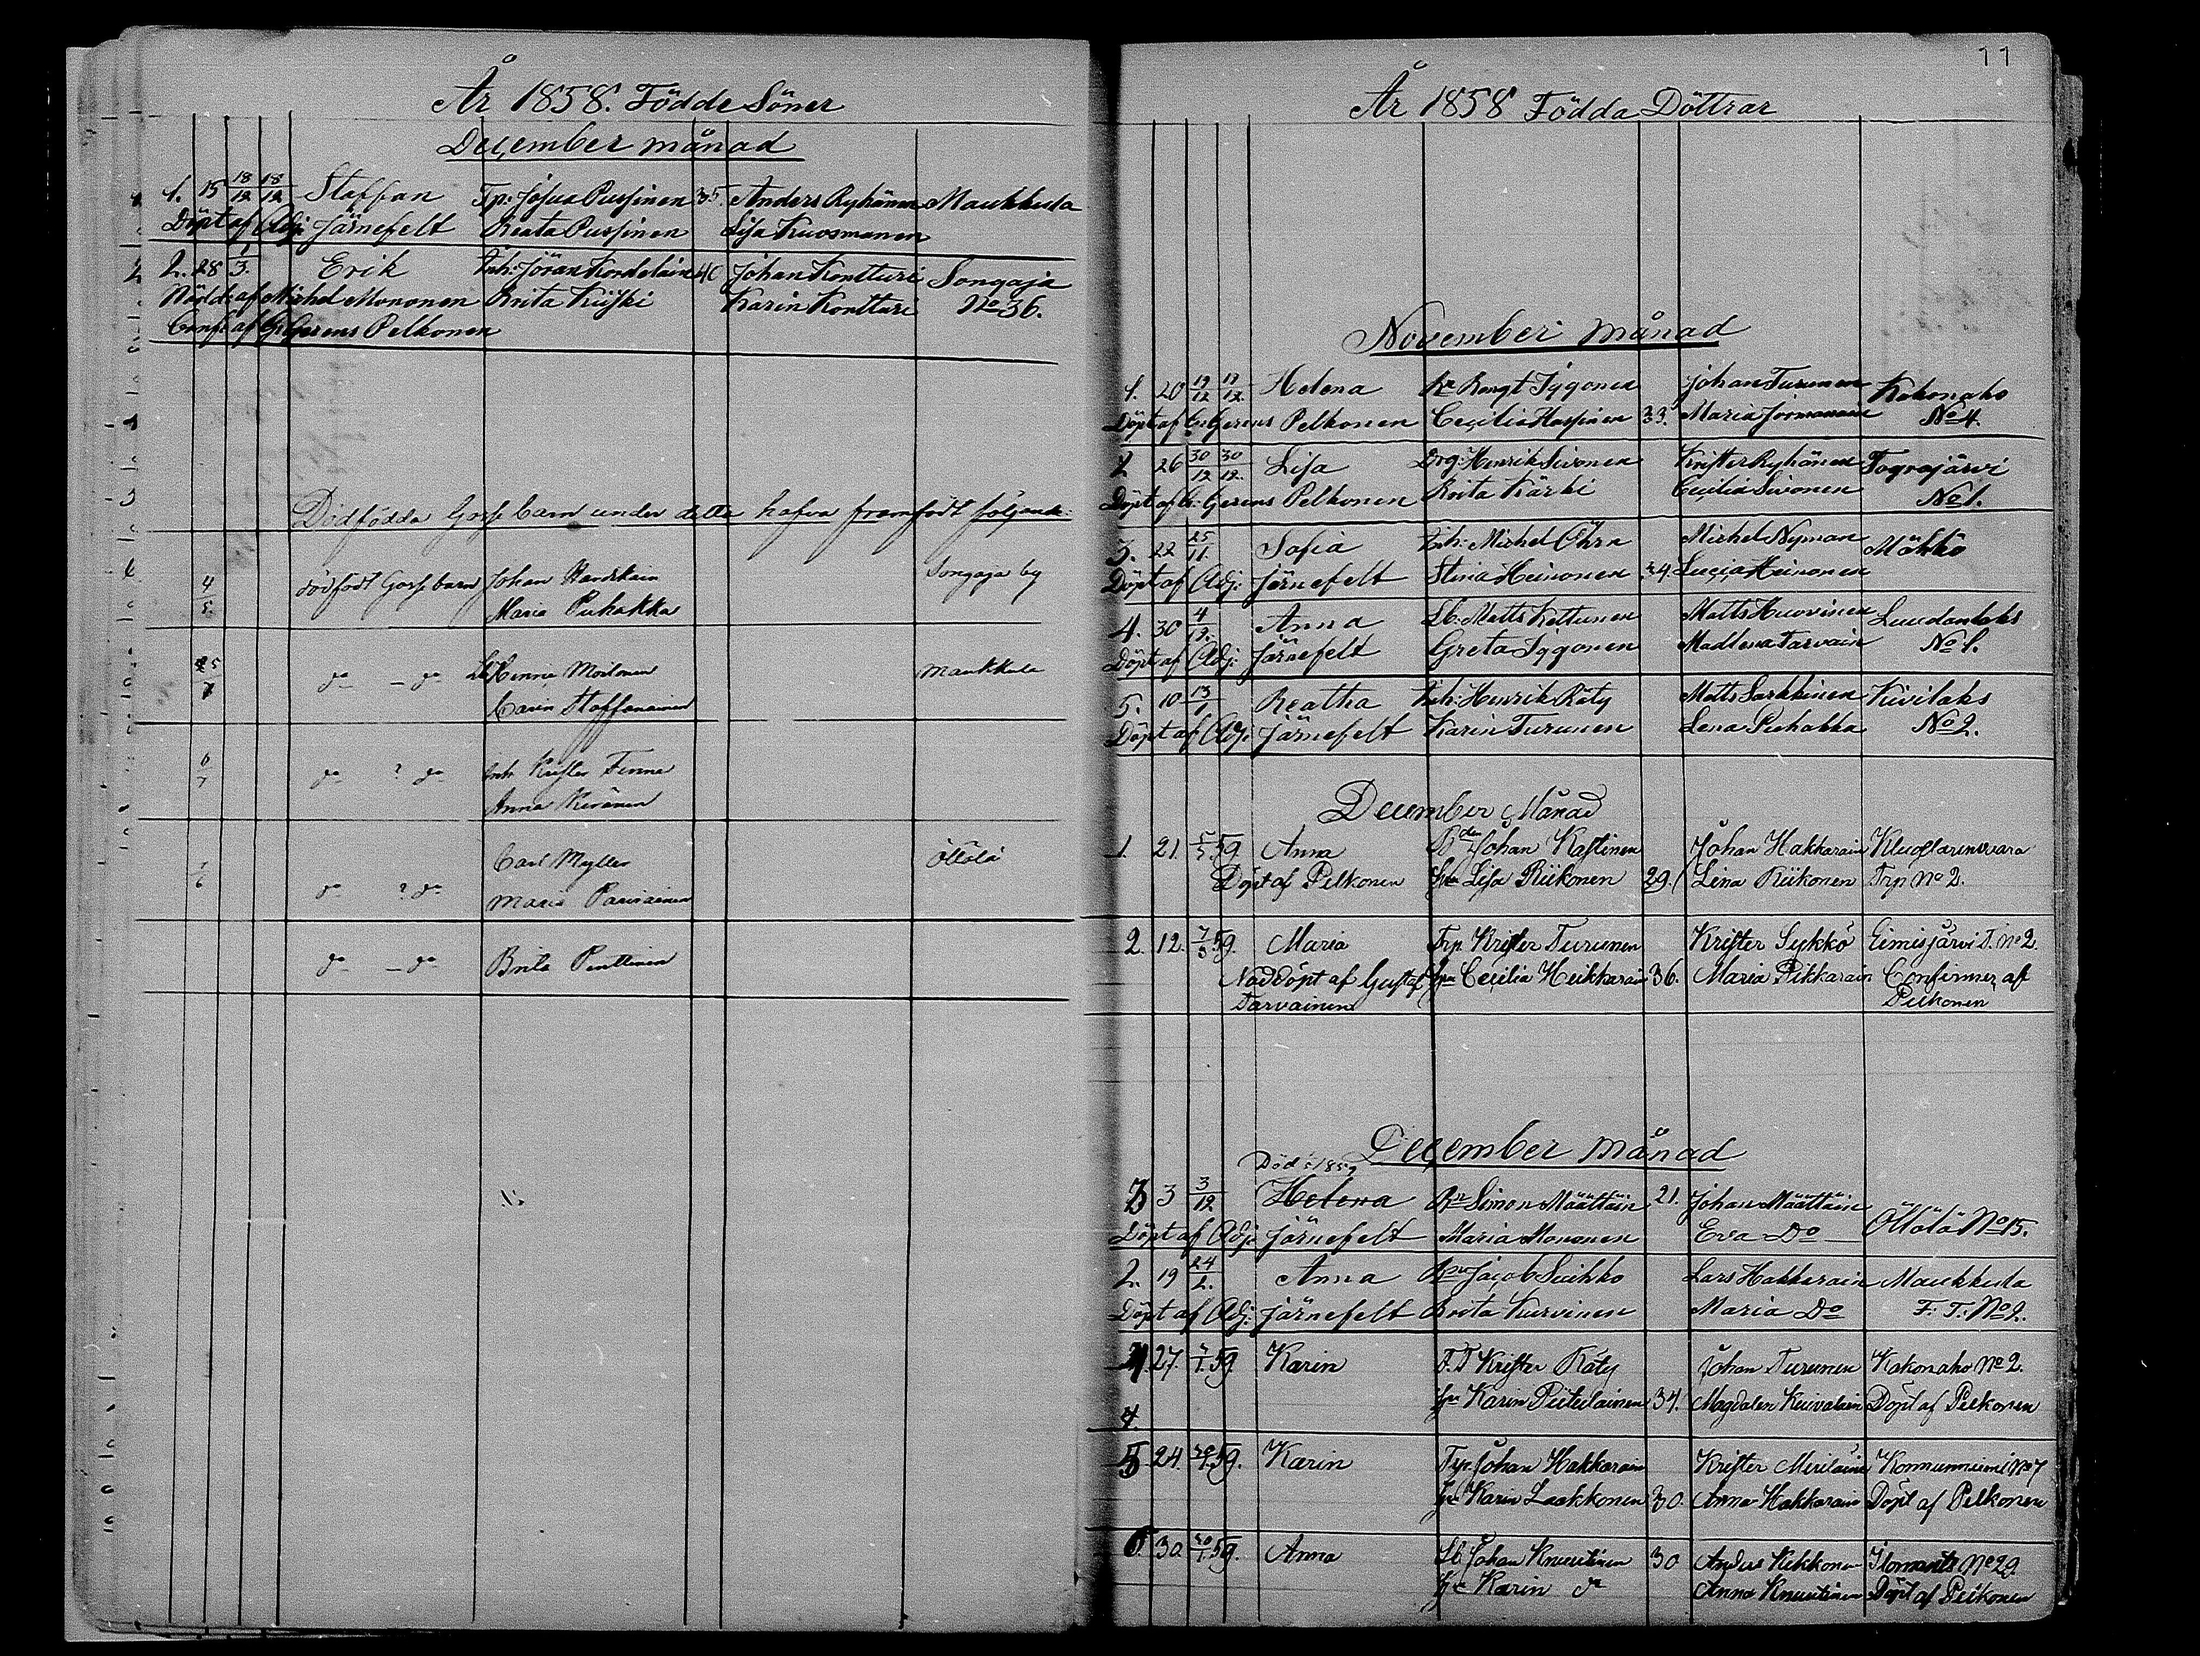 År 1858. Födde Söner
December månad
1. 15 18/12 18/12 Staffan Tp: Josua Pussinen 35. Anders Ryhänen Maukkula
Döpt af Adj: Järnefelt Beata Pussinen Lisa Kuosmanen
2. 28 1/3. Erik Inh: Jöran Kordelain 40 Johan Kontturi Songaja
Nödd: af Michel Mononen Brita Kiiski Karin Kontturi No 36.
Conf: af Gerens Pelkonen
Dödfödda Gosse barn under detta hafva framfödt följande:
4/5 dödfödt Gossebarn Johan Songaja by
Maria Puhakka
25/7 do — do Lb Moilanen Maukkula
Carin Staffanainen
6/7 do ? do Inh Krister Finne
Anna
Carl Myller Öllölä
do ? do Maria Parviainen
do — do Brita Penttinen
11
År 1858 Födda Döttrar
November månad
1. 20 19/12 19/12 Helena Bn Bengt Iggonen Johan Turunen Kokonaho
Döpt af Gerens Pelkonen Cecilia Hassinen 33. Maria Jormanain No 4.
2 26 30/12 30/12 Lisa Drg: Henrik Sivonen Krister Ryhänen Tograjärvi
Döpt af Gerens Pelkonen Brita Kärki Cecilia Sivonen No 1.
3. 22 25/11 Sofia Inh: Michel Öhrn Michel Nyman Möhkö
Döpt af Adj: Järnefelt Stina Heinonen 24. Lucia Heinonen
4. 30 4/12. Anna Lb: Matts Kettunen Matts Huovinen Luudanlaks
Döpt af Adj: Järnefelt Greta Iggonen Madlena Tarvain No 1.
5. 10 13/1 Beatha Inh: Henrik Räty Matts Sarkkinen Kivilaks
Döpt af Adj: Järnefelt Karin Turunen Lena Puhakka No 2.
December Månad
1. 21. 5/5 59. Anna Bden Johan Kastinen Johan Hakkarain
Döpt af Pelkonen hu Lisa Riikonen 29. Lena Riikonen Trp No 2.
2. 12. 7/3 59. Maria Trp Krister Turunen Krister Sykkö Eimisjärvi T. No 2.
Nöddöpt af Gustaf hu Cecilia Heikkarain 36. Maria Pikkarain Confirmer af
Tarvainen Pelkonen
December månad
Död 1859
3 3 3/12 Helena Bn Simon Määttäin 21. Johan Määttäin
Döpt af Adj: Järnefelt Maria Mononen Eva Do Öllölä No 15.
2. 19 24/2. Anna Bn Jacob Suihko Lars Hakkarain Maukkula
Döpt af Adj: Järnefelt Brita Turvinen Maria Do F: T: No 2.
4. 27. 59. Karin F. T Krister Räty Johan Turunen Kokonaho No 2.
4. hu Karin Piitulainen 34. Magdalen Kuivalain Döpt af Pelkonen
5 24. 59. Karin Trp Johan Hakkarain Krister No 7
hu Karin Laakkonen 30. Anna Hakkarain Döpt af Pelkonen
6. 30. 59. Anna Lb Johan Knuutinen 30 Anders Kukkonen Ilomants No 29.
hu Karin do Anna Knuutinen Döpt af Pelkonen